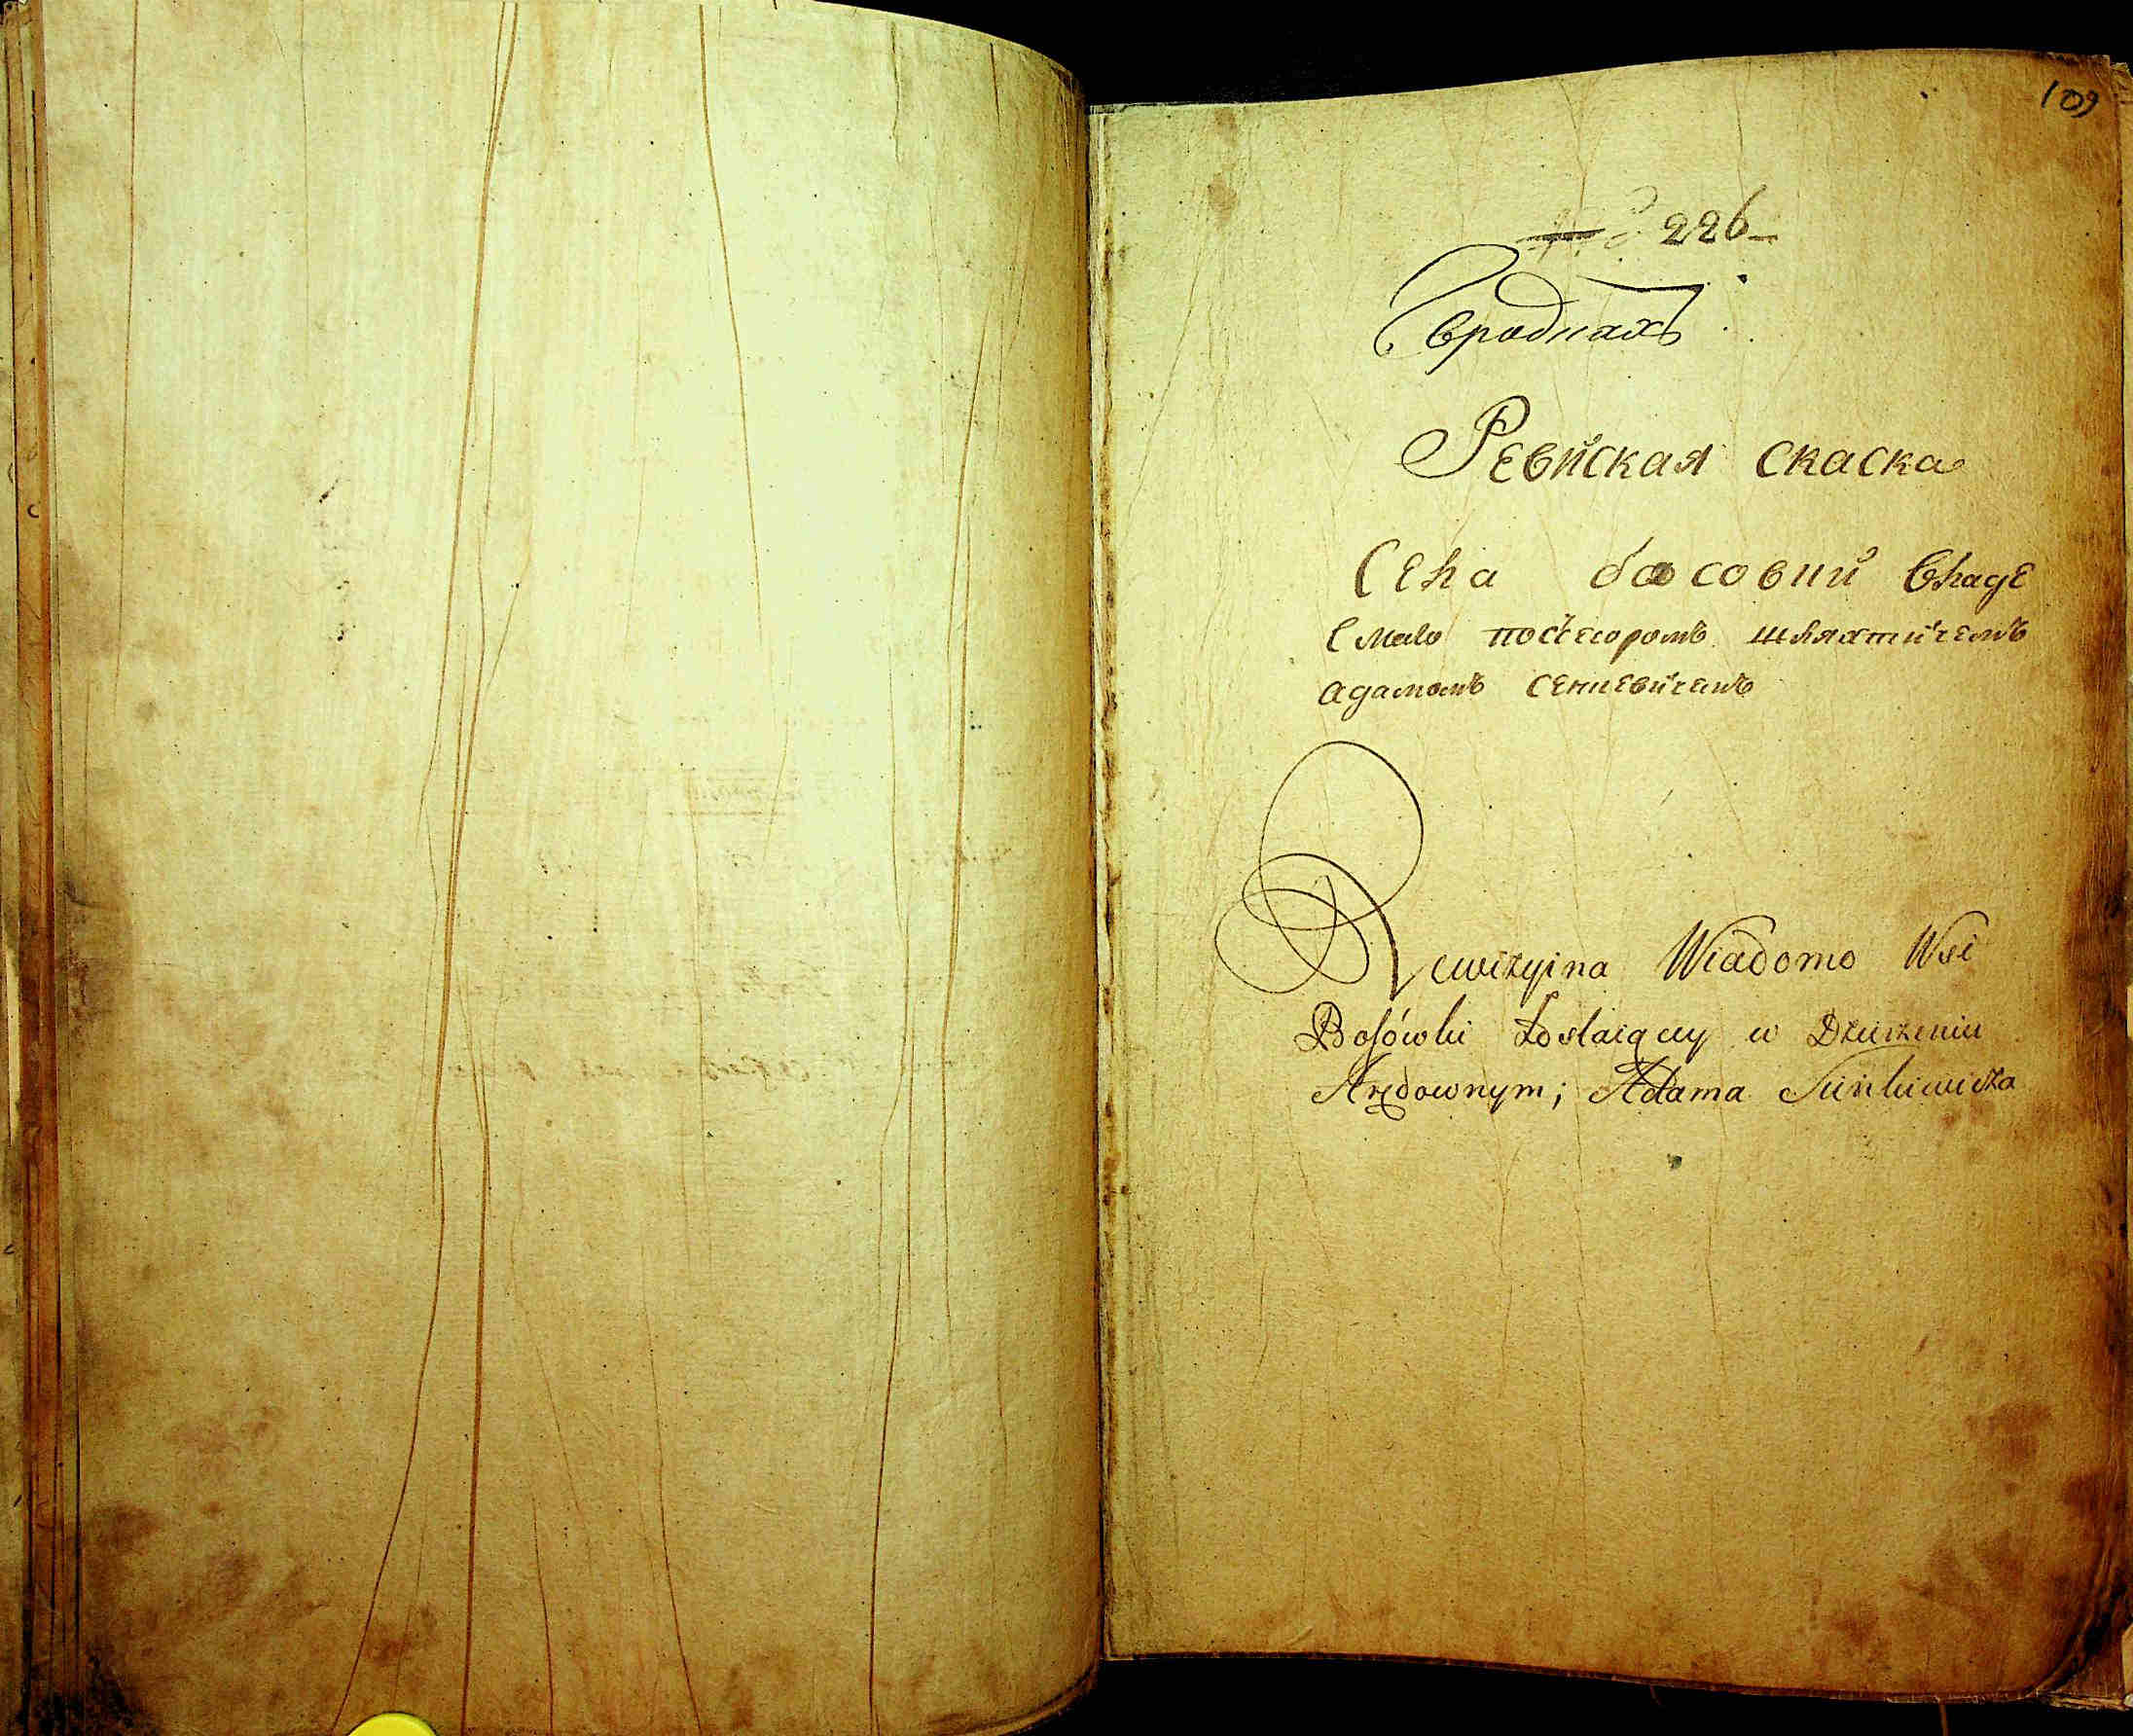 109
226
вроднахъ
Ревиская скаска
Села басовки владе
емаго посесоромъ шляхтичемъ
адамомъ сенкевичемъ
Rewizyina Wiadomo Wsi
Bosówki Zostaiący w Dzierzeniu
Arędownym; Adama Sinkiewicza